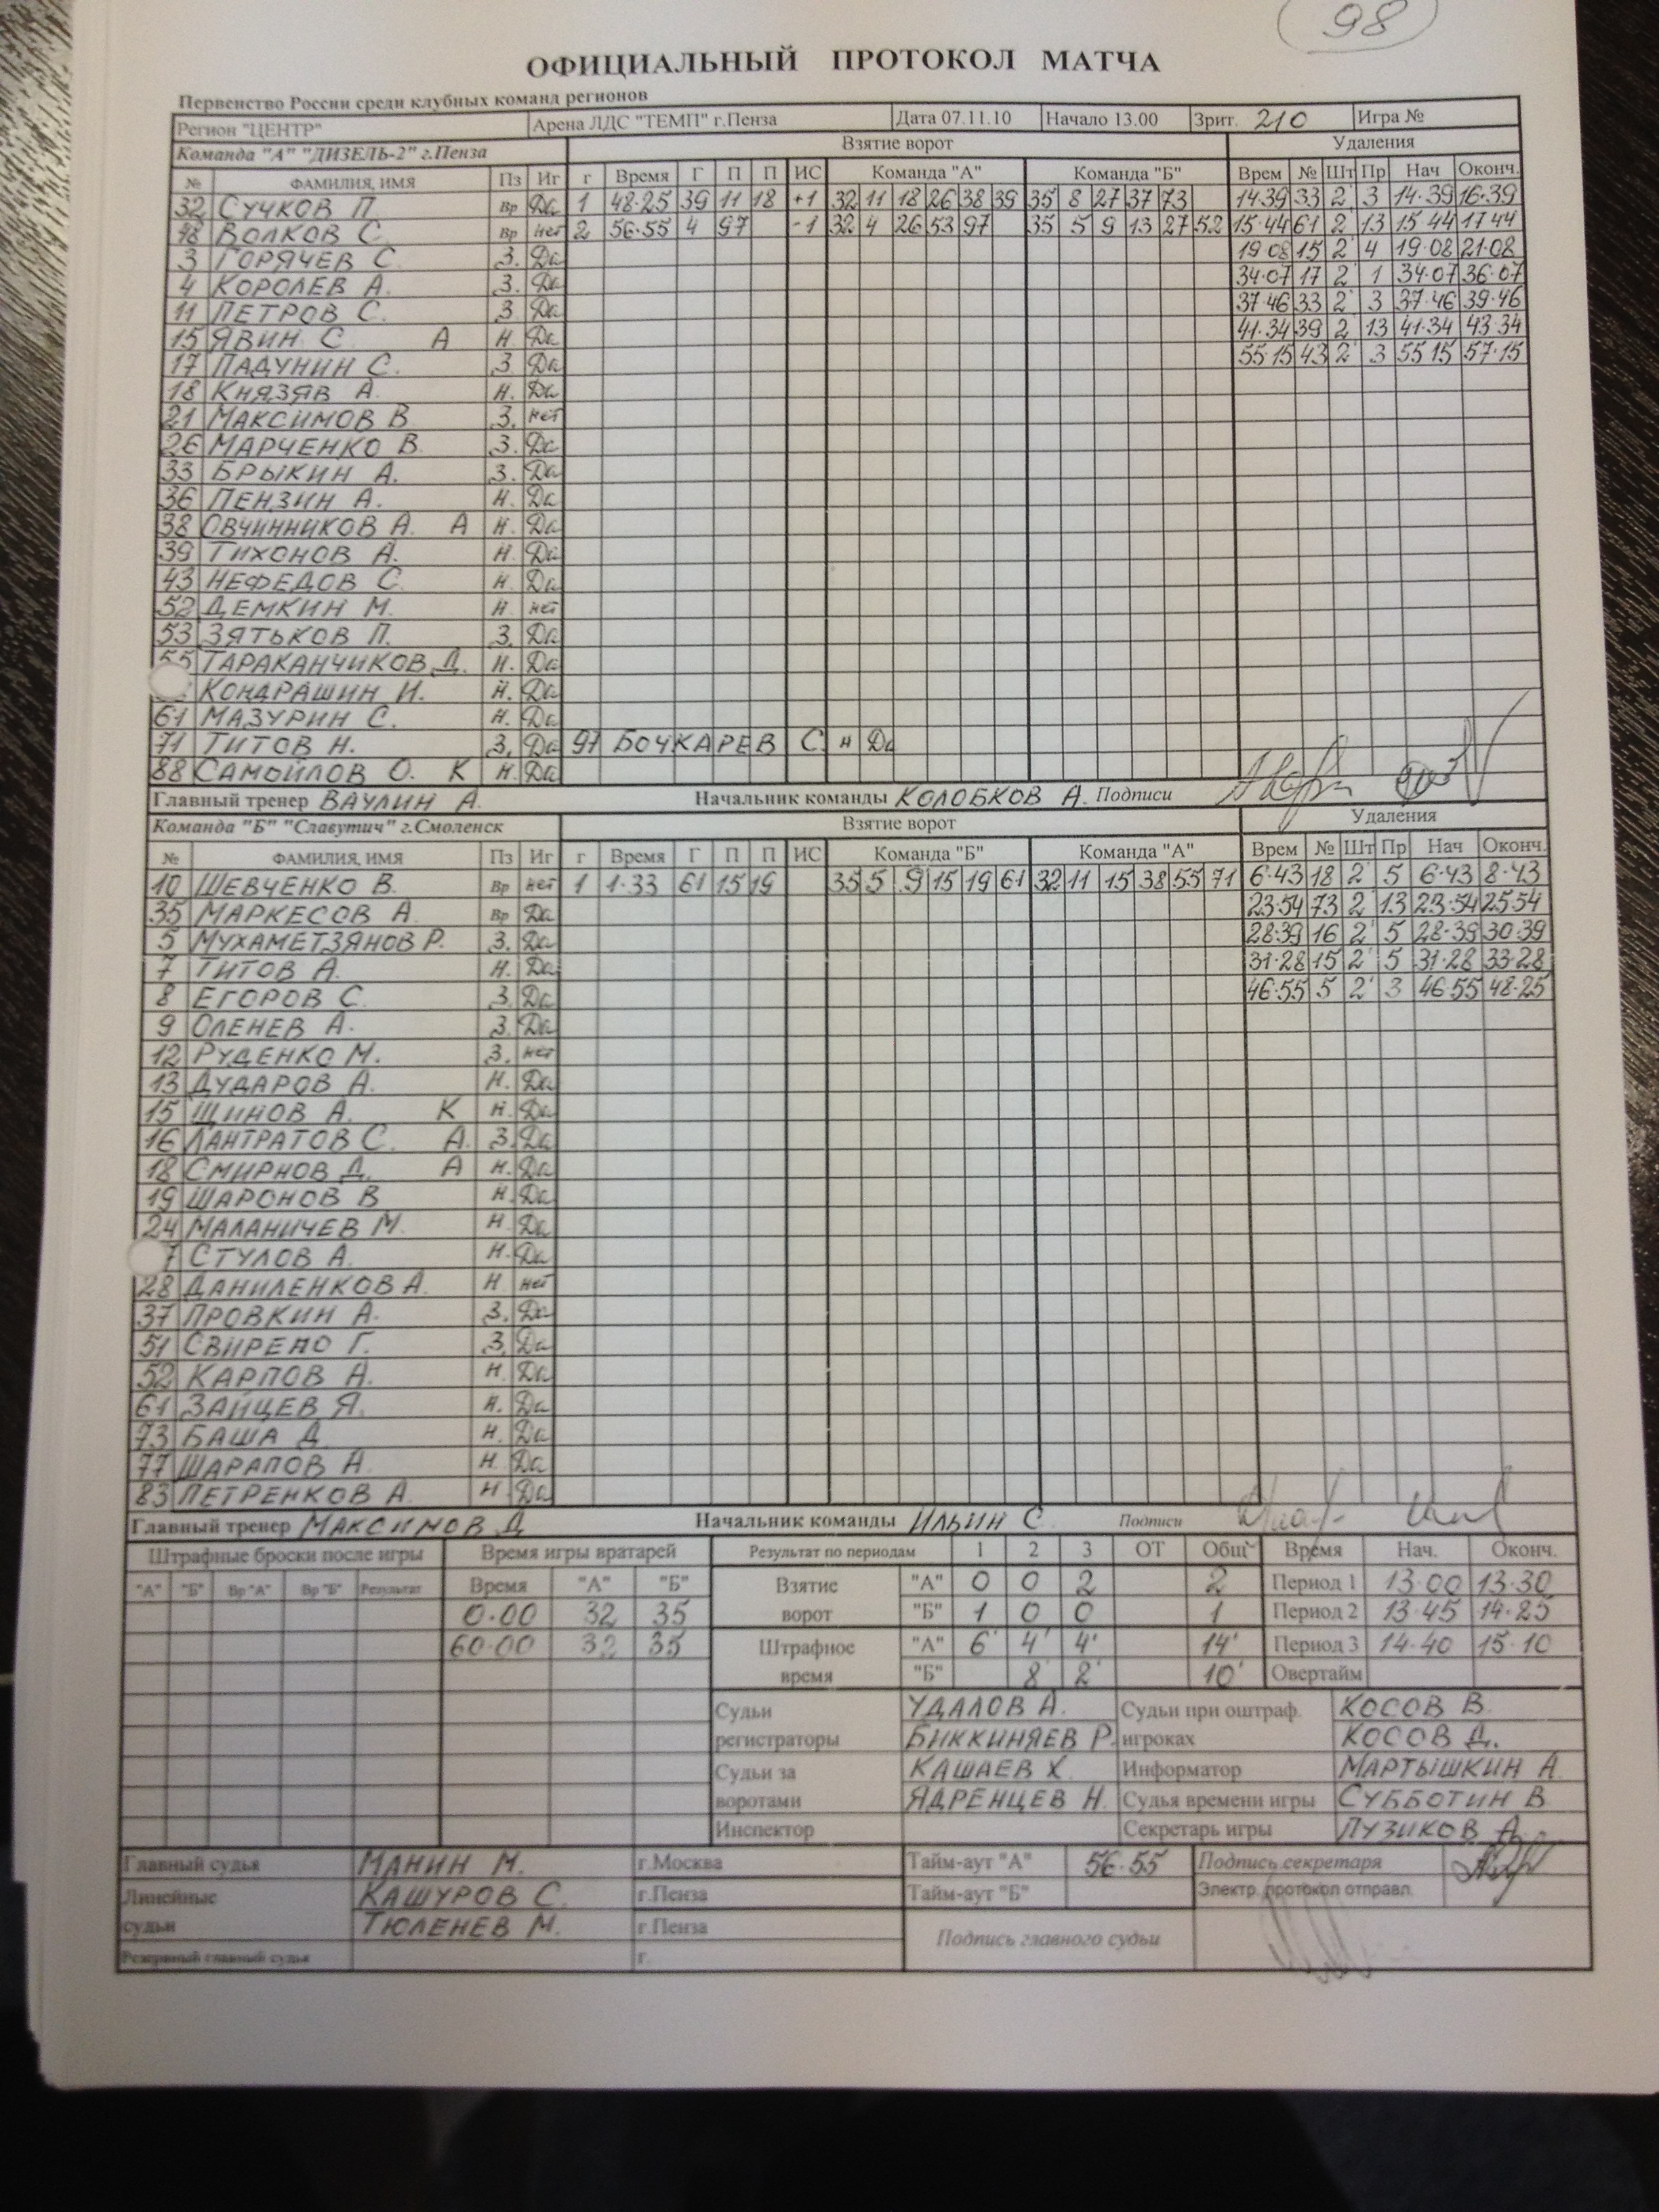 98
ОФИЦИАЛЬНЫЙ ПРОТОКОЛ МАТЧА
Первенство России среди клубных команд регионов
Регион "ЦЕНТР" Арена ЛДС "ТЕМП" г.Пенза Дата 07.11.10 Начало 13.00 Зрит. 210 Игра №
Команда "А" "ДИЗЕЛЬ-2" г.Пенза Взятие ворот Удаления
№ ФАМИЛИЯ, ИМЯ Пз Иг г Время Г П П ИС Команда "А" Команда "Б" Врем № Шт Пр Нач Оконч.
32 СУЧКОВ П. Вр Да 1 48·25 39 11 18 +1 32 11 18 26 38 39 35 8 27 37 73 14·39 33 2' 3 14·39 16·39
48 ВОЛКОВ С. Вр нет 2 56·55 4 97 -1 32 4 26 53 97 35 5 9 13 27 52 15·44 61 2' 13 15·44 17·44
3 ГОРЯЧЕВ С. З. Да 19·08 15 2' 4 19·08 21·08
4 КОРОЛЕВ А. З. Да 34·07 17 2' 1 34·07 36·07
11 ПЕТРОВ С. З Да 37·46 33 2' 3 37·46 39·46
15 ЯВИН С. А Н. Да 41·34 39 2 13 41·34 43·34
17 ПАДУНИН С. З. Да 55·15 43 2' 3 55·15 57·15
18 КНЯЗЯВ А. Н. Да
21 МАКСИМОВ В З. нет
26 МАРЧЕНКО В. З. Да
33 БРЫКИН А. З. Да
36 ПЕНЗИН А. Н. Да
38 ОВЧИННИКОВ А. А Н. Да
39 ТИХОНОВ А. Н. Да
43 НЕФЕДОВ С. Н. Да
52 ДЕМКИН М. Н. нет
53 ЗЯТЬКОВ П. З. Да
55 ТАРАКАНЧИКОВ Д. Н. Да
КОНДРАШИН И. Н. Да
61 МАЗУРИН С. Н. Да
71 ТИТОВ Н. З. Да 97 БОЧКАРЕВ С. Н Да
88 САМОЙЛОВ О. К Н. Да
Главный тренер ВАУЛИН А. Начальник команды КОЛОБКОВ А. Подписи
Команда "Б" "Славутич" г.Смоленск Взятие ворот Удаления
№ ФАМИЛИЯ, ИМЯ Пз Иг г Время Г П П ИС Команда "Б" Команда "А" Врем № Шт Пр Нач Оконч.
10 ШЕВЧЕНКО В. Вр нет 1 1·33 61 15 19 35 5 9 15 19 61 32 11 15 38 55 71 6·43 18 2' 5 6·43 8·43
35 МАРКЕСОВ А. Вр Да 23·54 73 2' 13 23·54 25·54
5 МУХАМЕТЗЯНОВ Р. З. Да 28·39 16 2' 5 28·39 30·39
7 ТИТОВ А. Н. Да 31·28 15 2' 5 31·28 33·28
8 ЕГОРОВ С. З Да 46·55 5 2' 3 46·55 48·25
9 ОЛЕНЕВ А. З. Да
12 РУДЕНКО М. З. нет
13 ДУДАРОВ А. Н. Да
15 ЩИНОВ А. К Н. Да
16 ЛАНТРАТОВ С. А. З. Да
18 СМИРНОВ Д. А Н. Да
19 ШАРОНОВ В Н. Да
24 МАЛАНИЧЕВ М. Н. Да
7 СТУЛОВ А. Н. Да
28 ДАНИЛЕНКОВ А. Н. нет
37 ПРОВКИН А. З. Да
51 СВИРЕПО Г. З. Да
52 КАРПОВ А. Н. Да
61 ЗАЙЦЕВ Я. Н. Да
73 БАША Д Н. Да
77 ШАРАПОВ А. Н. Да
83 ПЕТРЕНКОВ А. Н Да
Главный тренер МАКСИМОВ Д Начальник команды ИЛЬИН С. Подписи
Штрафные броски после игры Время игры вратарей Результат по периодам 1 2 3 ОТ Общ Время Нач. Оконч.
"А" "Б" Вр "А" Вр "Б" Результат Время "А" "Б" Взятие ворот "А" 0 0 2 2 Период 1 13·00 13·30
0·00 32 35 "Б" 1 0 0 1 Период 2 13·45 14·25
60·00 32 35 Штрафное время "А" 6' 4' 4' 14' Период 3 14·40 15·10
"Б" 8' 2' 10' Овертайм
Судьи регистраторы УДАЛОВ А. Судьи при оштраф. игроках КОСОВ В.
БИККИНЯЕВ Р. КОСОВ Д.
Судьи за воротами КАШАЕВ Х. Информатор МАРТЫШКИН А.
ЯДРЕНЦЕВ Н. Судья времени игры СУББОТИН В
Инспектор Секретарь игры ПУЗИКОВ А.
Главный судья МАНИН М. г.Москва Тайм-аут "А" 56·55 Подпись секретаря
Линейные судьи КАШУРОВ С. г.Пенза Тайм-аут "Б" Электр. протокол отправл.
ТЮЛЕНЕВ М. г.Пенза Подпись главного судьи
Резервный главный судья г.